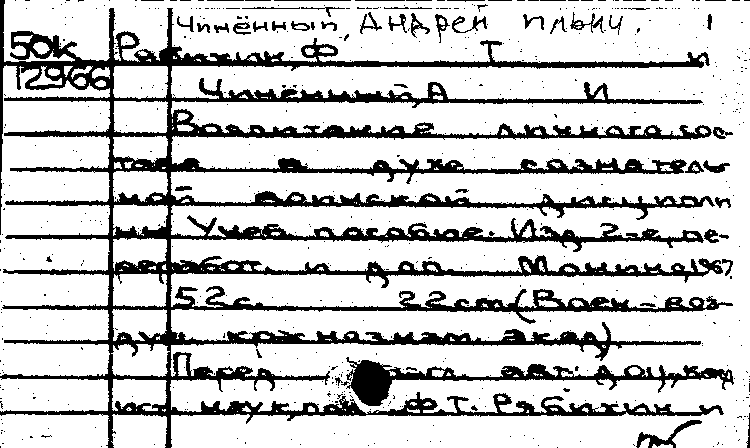 Чинённый, Андрей Ильич. 1
50к Рябихин, Ф Т и
12966 Чинённый, А И
Воспитание личного сос-
тава в духе сознатель
ной воинской дисципли
ны Учеб. пособие. Изд 2-е, пе-
реработ. и доп. Монино, 1967
52 с. 22 см (Воен-воз-
душ. краснознам. акад)
Перед загл. авт: доц, канд
ист. наук, полк Ф.Т. Рябихин и